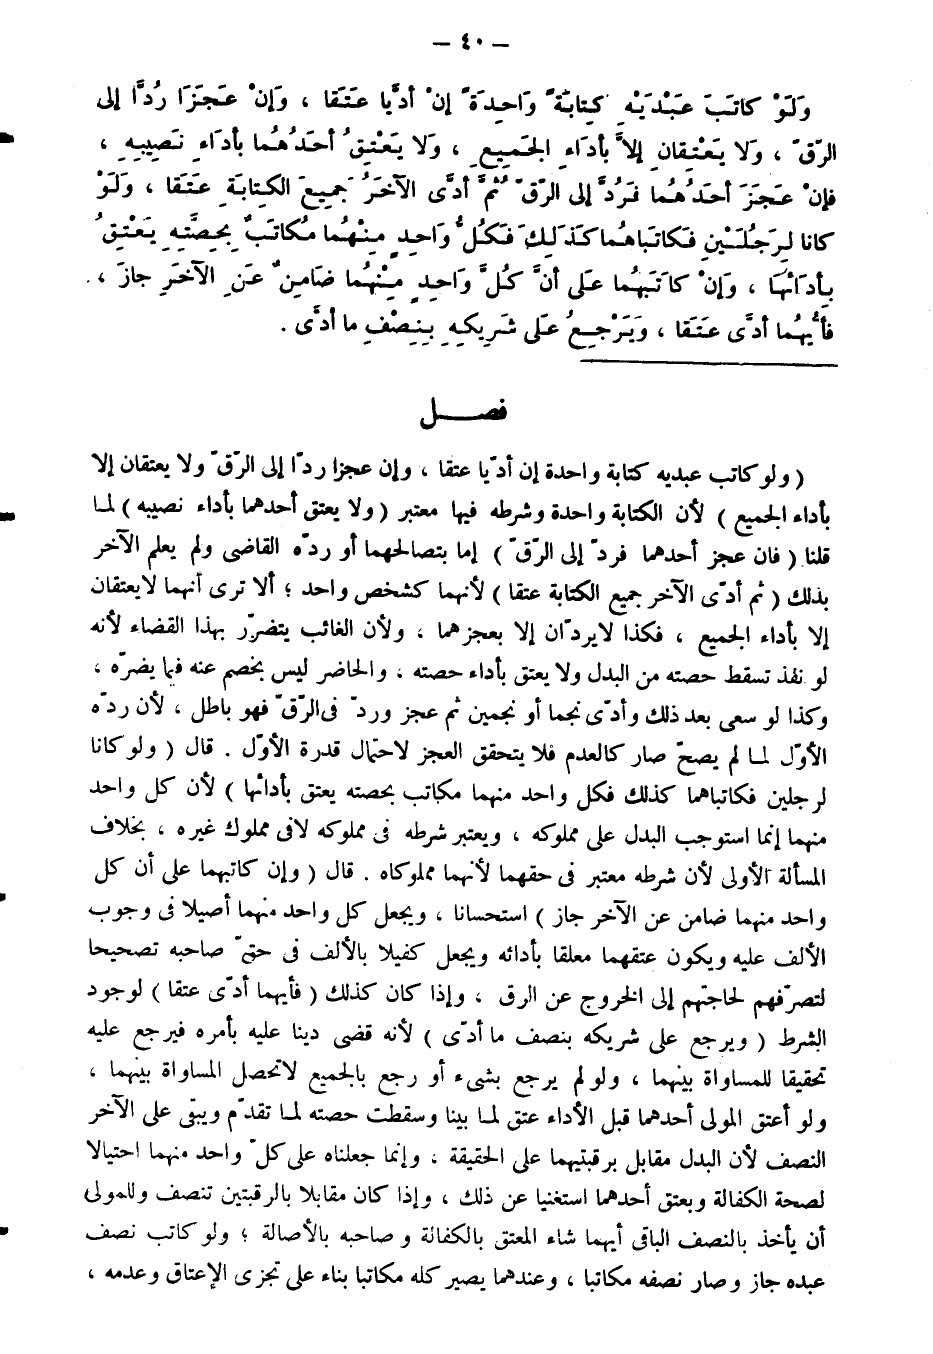 — ٤٠ —
وَلَوْ كاتَبَ عَبْدَيْهِ كِتابَةً وَاحِدَةً إنْ أدَّيا عَتَقا ، وَإنْ عَجَزَا رُدَّا إلى
الرّقّ ، وَلا يَعْتِقانِ إلاَّ بأدَاءِ الجَمِيعِ ، وَلا يَعْتِقُ أحَدُهُما بأدَاءِ نَصِيبِهِ ،
فإنْ عَجَزَ أحَدُهُما فَرُدَّ إلى الرّقّ ثُمَّ أدَّى الآخَرُ جَمِيعَ الكِتابَةِ عَتَقا ، وَلَوْ
كانا لِرَجُلَيْنِ فَكاتَباهُما كَذلِكَ فَكُلُّ وَاحِدٍ مِنْهُما مُكاتَبٌ بِحِصَّتِهِ يَعْتِقُ
بِأدَائها ، وَإنْ كاتَبَهُما عَلى أنَّ كُلَّ وَاحِدٍ مِنْهُما ضَامِنٌ عَنِ الآخَرِ جازَ ،
فأيُّهُما أدَّى عَتَقا ، وَيَرْجِعُ عَلى شَرِيكِهِ بِنِصْفِ ما أدَّى .
فصـــل
( ولو كاتب عبديه كتابة واحدة إن أدّيا عتقا ، وإن عجزا ردّا إلى الرّقّ ولا يعتقان إلا
بأداء الجميع ) لأن الكتابة واحدة وشرطه فيها معتبر ( ولا يعتق أحدهما بأداء نصيبه ) لما
قلنا ( فان عجز أحدهما فردّ إلى الرّقّ ) إما بتصالحهما أو ردّه القاضى ولم يعلم الآخر
بذلك ( ثم أدّى الآخر جميع الكتابة عتقا ) لأنهما كشخص واحد ؛ ألا ترى أنهما لايعتقان
إلا بأداء الجميع ، فكذا لايردّان إلا بعجزهما ، ولأن الغائب يتضرّر بهذا القضاء لأنه
لو نفذ تسقط حصته من البدل ولا يعتق بأداء حصته ، والحاضر ليس بخصم عنه فيما يضرّه ،
وكذا لو سعى بعد ذلك وأدّى نجما أو نجمين ثم عجز وردّ فى الرّقّ فهو باطل ، لأن ردّه
الأوّل لما لم يصحّ صار كالعدم فلا يتحقق العجز لاحتمال قدرة الأوّل . قال ( ولو كانا
لرجلين فكاتباهما كذلك فكل واحد منهما مكاتب بحصته يعتق بأدائها ) لأن كل واحد
منهما إنما استوجب البدل على مملوكه ، ويعتبر شرطه فى مملوكه لافى مملوك غيره ، بخلاف
المسألة الأولى لأن شرطه معتبر فى حقهما لأنهما مملوكاه . قال ( وإن كاتبهما على أن كل
واحد منهما ضامن عن الآخر جاز ) استحسانا ، ويجعل كل واحد منهما أصيلا فى وجوب
الألف عليه ويكون عتقهما معلقا بأدائه ويجعل كفيلا بالألف فى حقّ صاحبه تصحيحا
لتصرّفهم لحاجتهم إلى الخروج عن الرق ، وإذا كان كذلك ( فأيهما أدّى عتقا ) لوجود
الشرط ( ويرجع على شريكه بنصف ما أدّى ) لأنه قضى دينا عليه بأمره فيرجع عليه
تحقيقا للمساواة بينهما ، ولو لم يرجع بشىء أو رجع بالجميع لاتحصل المساواة بينهما ،
ولو أعتق المولى أحدهما قبل الأداء عتق لما بينا وسقطت حصته لما تقدّم ويبقى على الآخر
النصف لأن البدل مقابل برقبتيهما على الحقيقة ، وإنما جعلناه على كلّ واحد منهما احتيالا
لصحة الكفالة وبعتق أحدهما استغنيا عن ذلك ، وإذا كان مقابلا بالرقبتين تنصف وللمولى
أن يأخذ بالنصف الباقى أيهما شاء المعتق بالكفالة وصاحبه بالأصالة ؛ ولو كاتب نصف
عبده جاز وصار نصفه مكاتبا ، وعندهما يصير كله مكاتبا بناء على تجزى الإعتاق وعدمه ،